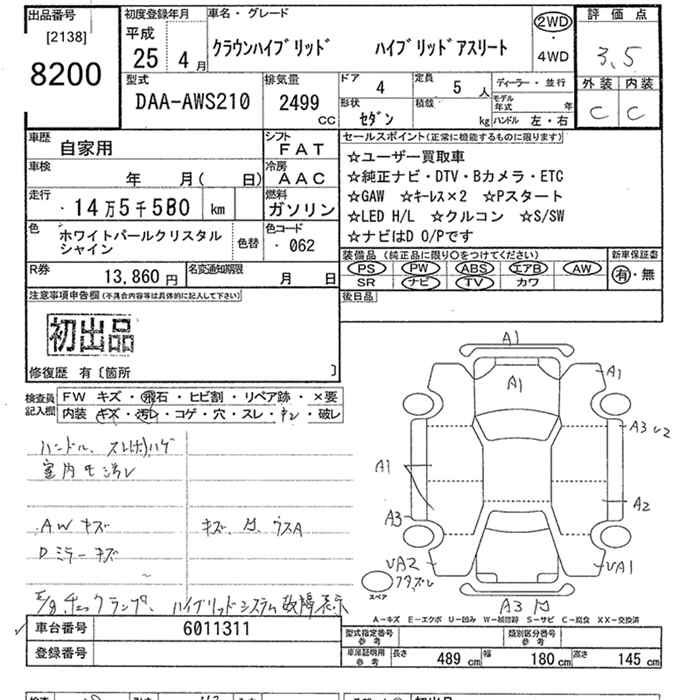 出品番号
[2138]
8200
初度登録年月
平成
25 4月
車名・グレード
クラウンハイブリッド ハイブリッドアスリート
2WD
・
4WD
評価点
3.5
外装 内装
C C
型式
DAA-AWS210
排気量
2499 CC
ドア 4
形状 セダン
定員 5 人
積載 kg
ディーラー・並行
モデル年式 年
ハンドル 左・右
車歴 自家用
シフト FAT
車検 年 月( 日)
冷房 AAC
走行 14万5千580 km
燃料 ガソリン
色 ホワイトパールクリスタル
シャイン
色替
色コード 062
R券 13,860円
名変通知期限 月 日
セールスポイント(正常に機能するものに限ります)
☆ユーザー買取車
☆純正ナビ・DTV・Bカメラ・ETC
☆GAW ☆キーレス×2 ☆Pスタート
☆LED H/L ☆クルコン ☆S/SW
☆ナビはD O/Pです
装備品 (純正品に限り○をつけてください)
PS PW ABS エアB AW
SR ナビ TV カワ
新車保証書
有・無
後日品
注意事項申告欄(不具合内容等は具体的に記入して下さい)
初出品
修復歴 有〔箇所 〕
検査員
記入欄
FW キズ・飛石・ヒビ割・リペア跡・×要
内装 キズ・汚レ・コゲ・穴・スレ・キレ・破レ
ハンドル、スレ
室内モ汚レ
AW キズ
Dミラーキズ
E/gチェックランプ、ハイブリッドシステム故障表示
A1
A1
A1
A3
A1
A2
A3
UA2
UA1
スペア
A3
A-キズ E-エクボ U-凹み W-補修跡 S-サビ C-腐食 XX-交換済
車台番号 6011311
登録番号
型式指定番号
参考
類別区分番号
参考
車庫証明用
参考
長さ 489 cm 幅 180 cm 高さ 145 cm
初出品